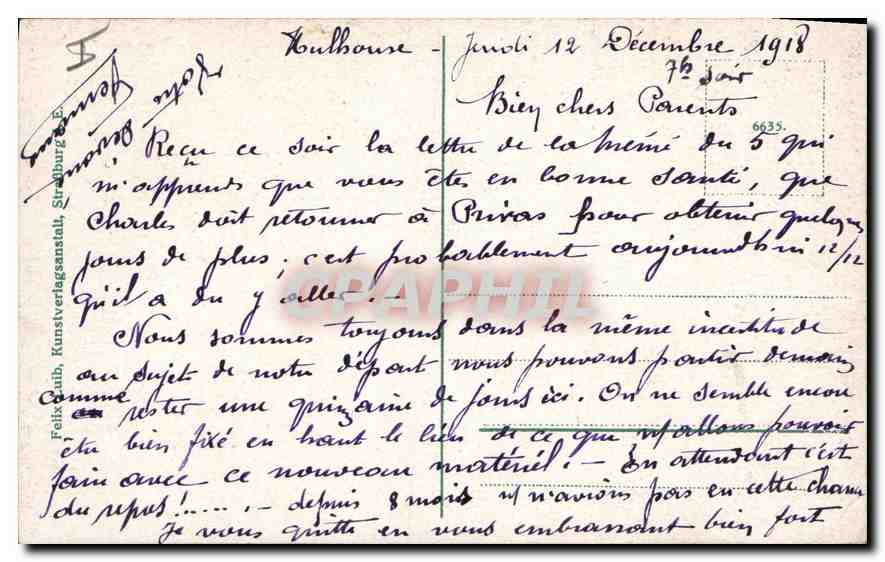 Mulhouse - Jeudi 12 Décembre 1918
7h soir
Bien chers Parents
6635.
Reçu ce soir la lettre de la Mémé du 5 qui
m'apprends que vous êtes en bonne santé, que
Charles doit retourner à Privas pour obtenir quelques
jours de plus; c'est probablement aujourd'hui 12/12
qu'il a du y aller. -
Nous sommes toujours dans la même incertitude
au sujet de notre départ nous pouvons partir demain
comme rester une quinzaine de jours ici. On ne semble encore
être bien fixé en haut le lieu de ce que n/ allons pouvoir
faire avec ce nouveau matériel. - En attendant c'est
du repos!...... - depuis 8 mois n/ n'avions pas eu cette chance
Je vous quitte en vous embrassant bien fort
Votre
Felix Luib, Kunstverlagsanstalt, Straßburg i. E.
CPAPHIL